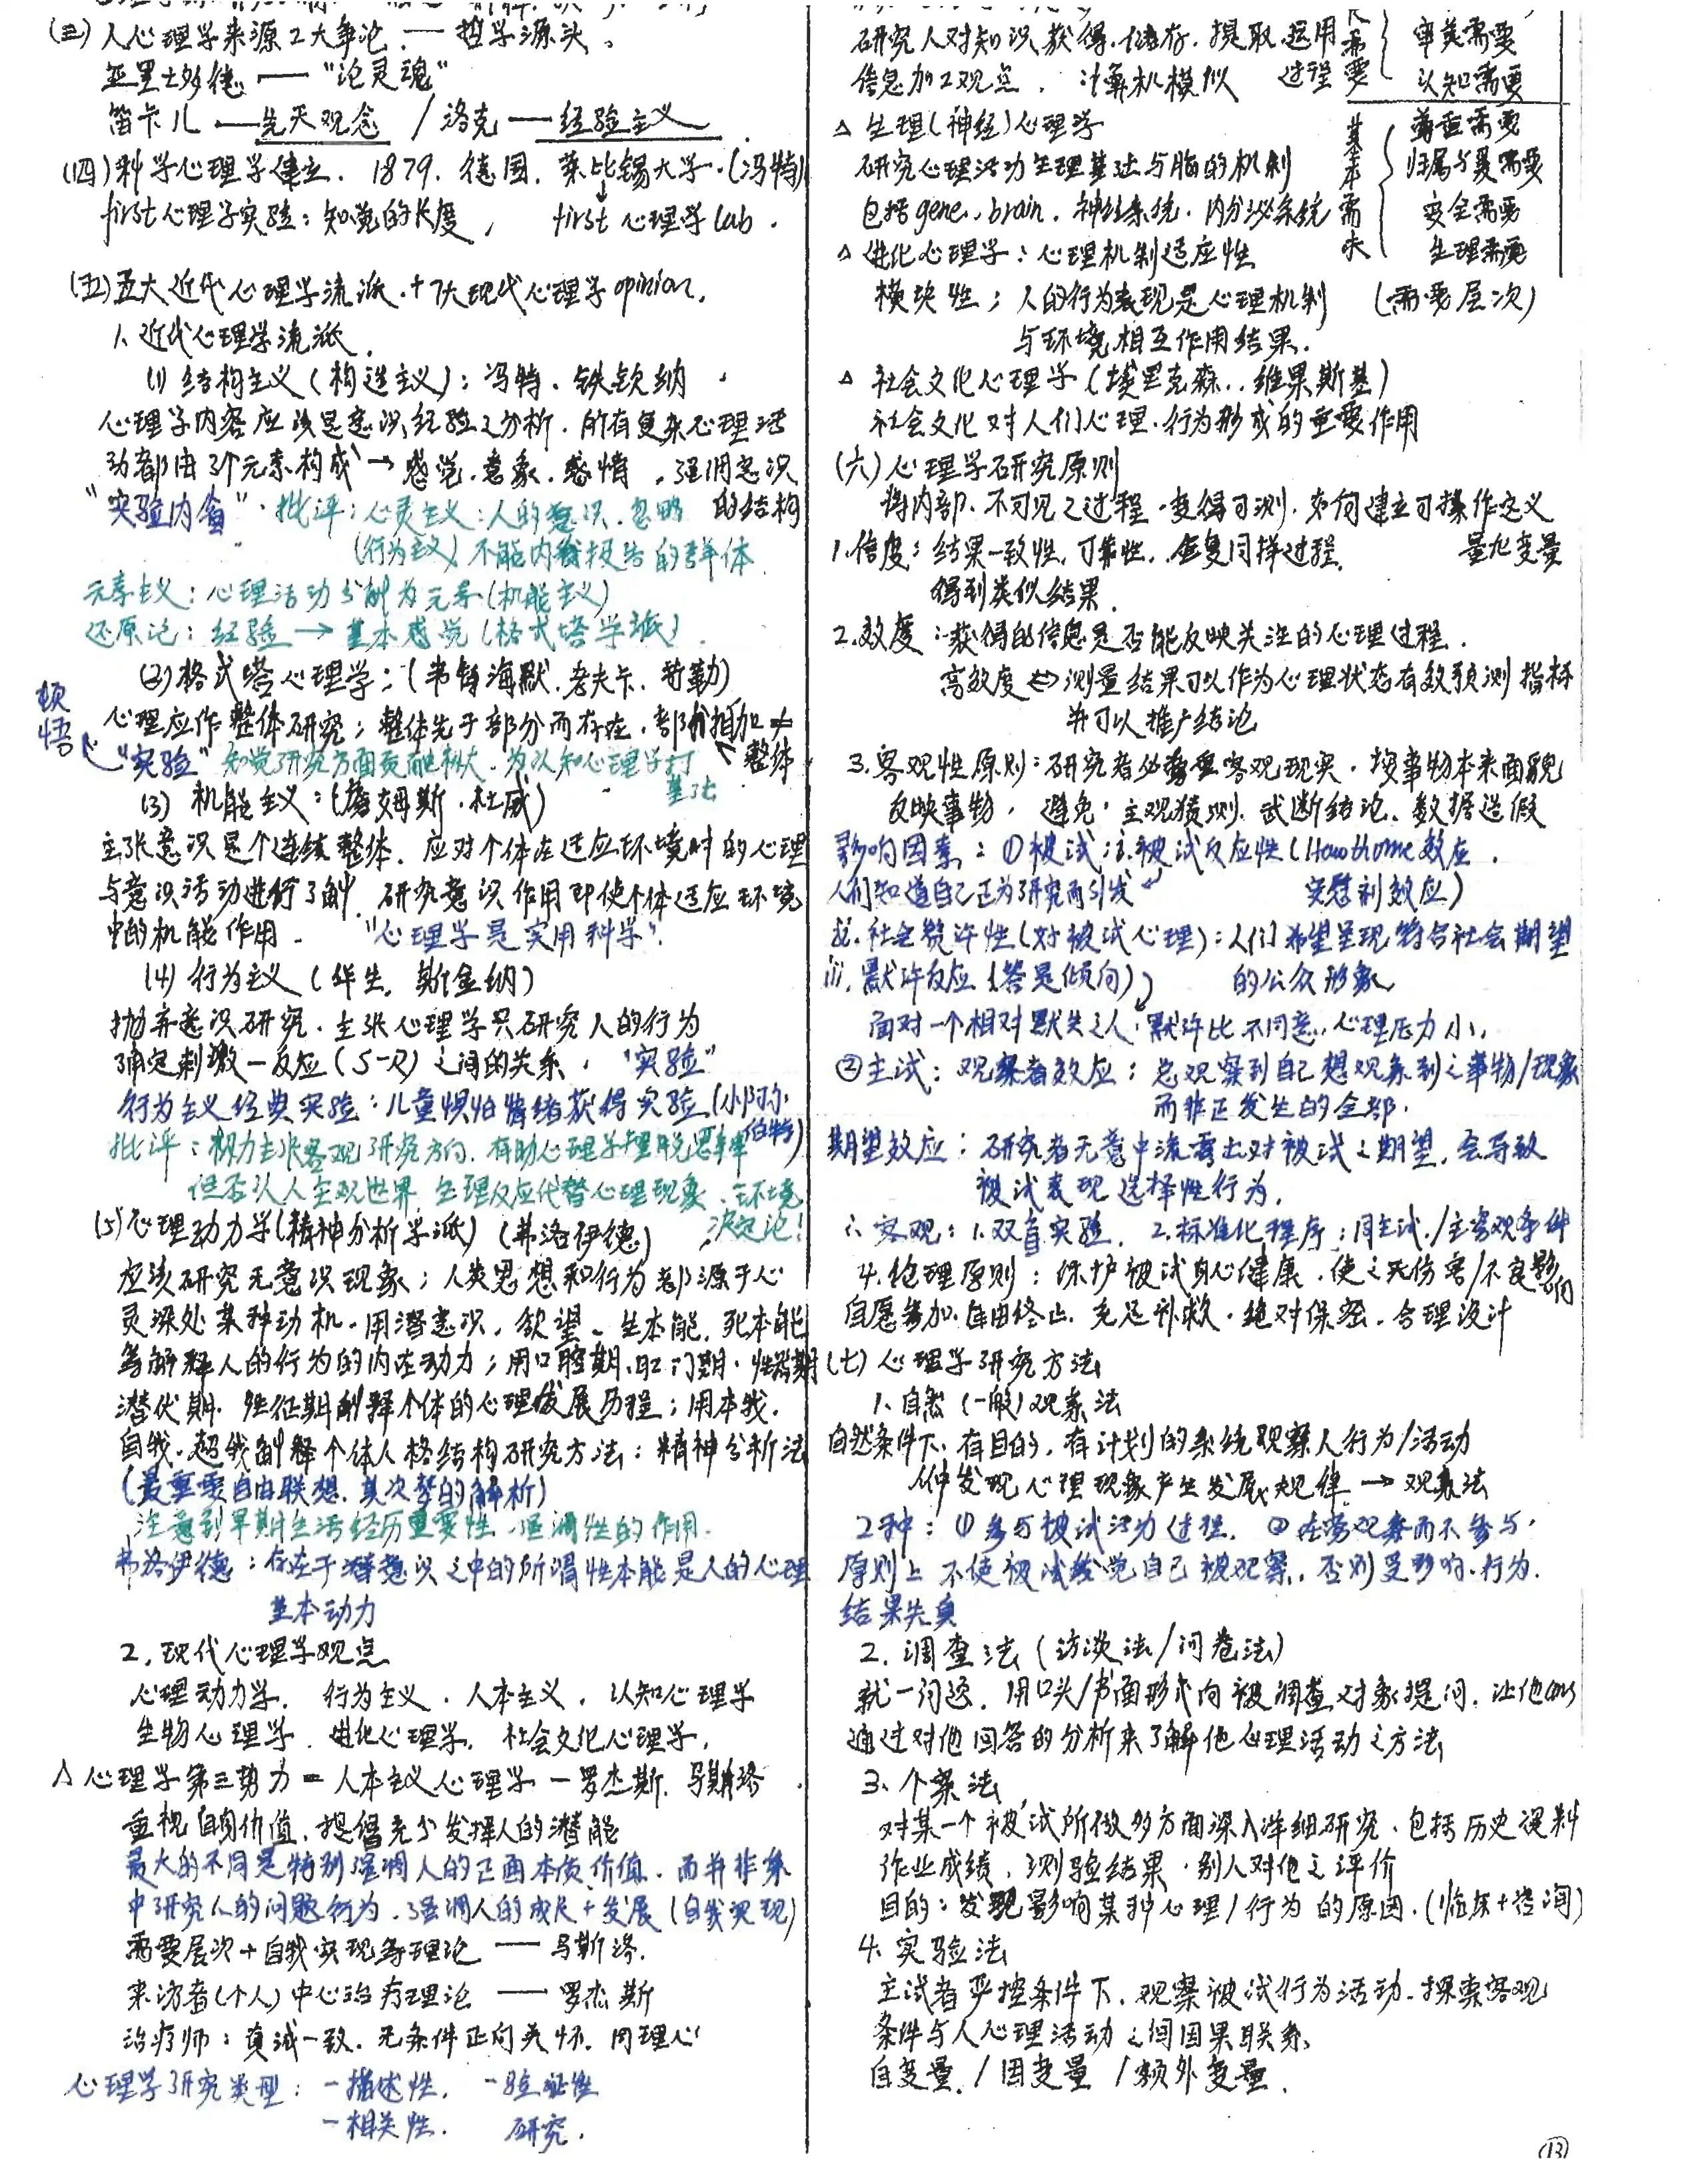 (三) 人心理学来源2大争论 — 哲学源头。
亚里士多德 — “论灵魂”
笛卡儿 — 先天观念 / 洛克 — 经验主义
(四) 科学心理学建立. 1879. 德国. 莱比锡大学.(冯特)
first 心理学实验: 知觉的长度, first 心理学 lab.
(五) 五大近代心理学流派 + 7大现代心理学 opinion.
1. 近代心理学流派.
(1) 结构主义 (构造主义): 冯特. 铁钦纳.
心理学内容应该是意识经验之分析. 所有复杂心理活
动都由3个元素构成 → 感觉. 意象. 感情. 强调意识
的结构
“实验内省”. 批评: 心灵主义: 人的意识. 忽略
(行为主义) 不能内省报告的群体
元素主义: 心理活动分解为元素 (机能主义)
还原论: 经验 → 基本感觉 (格式塔学派).
(2) 格式塔心理学: (韦特海默. 考夫卡. 苛勒)
顿悟
心理应作整体研究; 整体先于部分而存在. 部分相加 ≠
整体
“实验” 知觉研究方面贡献极大. 为认知心理学打
基础
(3) 机能主义: (詹姆斯. 杜威)
主张意识是个连续整体. 应对个体在适应环境时的心理
与意识活动进行了解. 研究意识作用即使个体适应环境
中的机能作用. “心理学是实用科学”.
(4) 行为主义 (华生. 斯金纳)
抛弃意识研究. 主张心理学只研究人的行为
确定刺激—反应 (S-R) 之间的关系. “实验”
行为主义经典实验: 儿童惧怕情绪获得实验 (小阿尔
伯特)
批评: 极力主张客观研究方向. 有助心理学摆脱思辨
但否认人主观世界. 生理反应代替心理现象. 环境
决定论!
(5) 心理动力学 (精神分析学派) (弗洛伊德)
应该研究无意识现象; 人类思想和行为都源于心
灵深处某种动机. 用潜意识. 欲望. 生本能. 死本能
等解释人的行为的内在动力; 用口腔期. 肛门期. 性器期
潜伏期. 性征期解释个体的心理发展历程; 用本我.
自我. 超我解释个体人格结构 研究方法: 精神分析法
(最重要自由联想. 其次梦的解析)
注意到早期生活经历重要性. 强调性的作用.
弗洛伊德: 存在于潜意识之中的所谓性本能是人的心理
基本动力
2. 现代心理学观点
心理动力学. 行为主义. 人本主义. 认知心理学
生物心理学. 进化心理学. 社会文化心理学.
△ 心理学第三势力 = 人本主义心理学 — 罗杰斯. 马斯洛.
重视自身价值. 提倡充分发挥人的潜能
最大的不同是特别强调人的正面本质价值. 而并非集
中研究人的问题行为. 强调人的成长 + 发展 (自我实现)
需要层次 + 自我实现等理论 — 马斯洛.
来访者 (个人) 中心治疗理论 — 罗杰斯
治疗师: 真诚一致. 无条件正向关怀. 同理心
心理学研究类型: - 描述性. - 验证性
- 相关性. 研究.
研究人对知识获得. 储存. 提取. 运用
信息加工观点. 计算机模拟 过程
长需要 { 审美需要
认知需要
△ 生理 (神经) 心理学
研究心理活动生理基础与脑的机制
包括gene. brain. 神经系统. 内分泌系统
基本需求 { 尊重需要
归属与爱需要
安全需要
生理需要
(需要层次)
△ 进化心理学: 心理机制适应性
模块性; 人的行为表现是心理机制
与环境相互作用结果.
△ 社会文化心理学 (埃里克森.. 维果斯基)
社会文化对人们心理. 行为形成的重要作用
(六) 心理学研究原则
将内部. 不可见之过程. 变得可测. 如何建立可操作定义
量化变量
1. 信度: 结果一致性. 可靠性. 重复同样过程.
得到类似结果.
2. 效度: 获得的信息是否能反映关注的心理过程.
高效度 ⇔ 测量结果可以作为心理状态有效预测指标
并可以推广结论
3. 客观性原则: 研究者必尊重客观现实. 按事物本来面貌
反映事物. 避免: 主观猜测. 武断结论. 数据造假
影响因素: ① 被试: i. 被试反应性 (Hawthorne效应.
人们知道自己正为研究而引发 安慰剂效应)
ii. 社会赞许性 (对被试心理): 人们希望呈现符合社会期望
的公众形象
iii. 默许反应 (答是倾向)
面对一个相对默失之人. 默许比不同意. 心理压力小.
② 主试: 观察者效应: 总观察到自己想观察到之事物/现象
而非正发生的全部.
期望效应: 研究者无意中流露出对被试之期望. 会导致
被试表现选择性行为.
∴ 客观: 1. 双盲实验. 2. 标准化程序: 同主试/主客观条件
4. 伦理原则: 保护被试身心健康. 使之无伤害/不良影响
自愿参加. 自由终止. 充足补救. 绝对保密. 合理设计
(七) 心理学研究方法
1. 自然 (一般) 观察法
自然条件下. 有目的. 有计划的系统观察人行为/活动
从中发现心理现象产生发展规律 → 观察法
2种: ① 参与被试活动过程. ② 在旁观察而不参与.
原则上不使被试发觉自己被观察. 否则受影响. 行为.
结果失真
2. 调查法 (访谈法/问卷法)
就一问题. 用口头/书面形式向被调查对象提问. 让他ans
通过对他回答的分析来了解他心理活动之方法
3. 个案法
对某一个被试所做多方面深入详细研究. 包括历史资料
作业成绩. 测验结果. 别人对他之评价
目的: 发现影响某种心理/行为的原因. (临床+咨询)
4. 实验法
主试者严控条件下. 观察被试行为活动. 探索客观
条件与人心理活动之间因果联系.
自变量. / 因变量 / 额外变量.
⑬